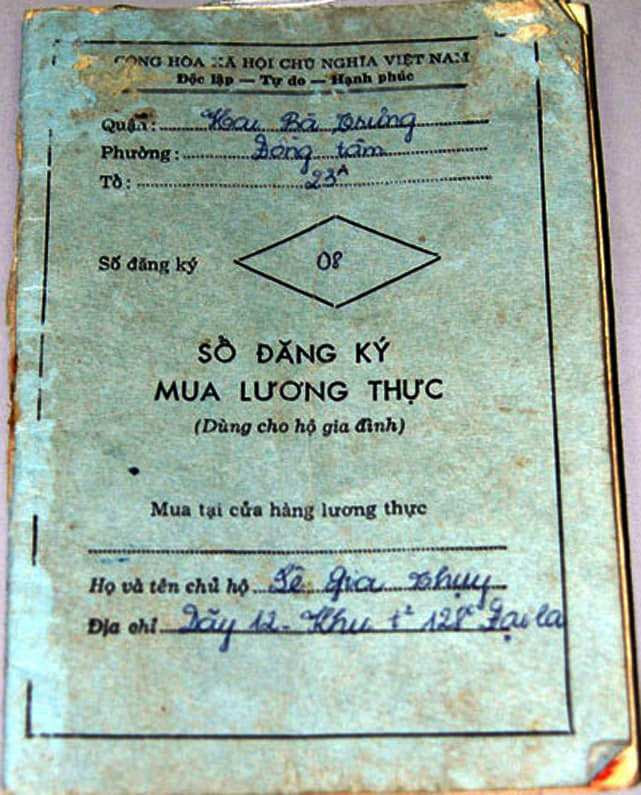 CỘNG HÒA XÃ HỘI CHỦ NGHĨA VIỆT NAM
Độc lập — Tự do — Hạnh phúc
Quận: Hai Bà Trưng
Phường: Đồng tâm
Tổ: 23A
Số đăng ký 08
SỔ ĐĂNG KÝ
MUA LƯƠNG THỰC
(Dùng cho hộ gia đình)
Mua tại cửa hàng lương thực
Họ và tên chủ hộ Lê Gia Thụy
Địa chỉ Dãy 12 - Khu t² 128c Đại la